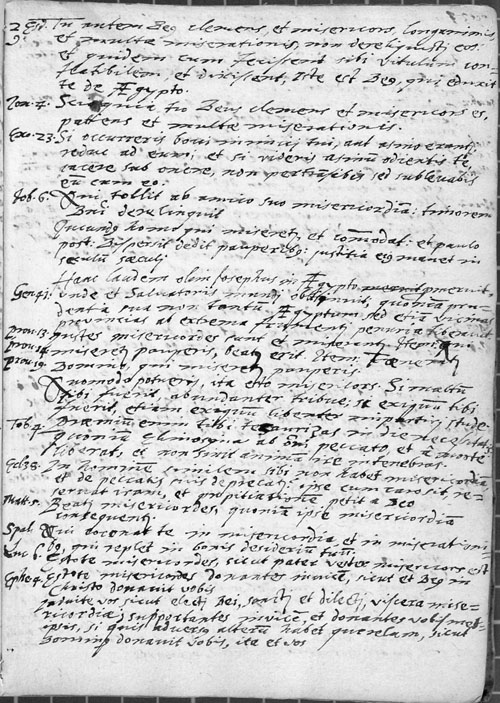 2 Esd. Tu autem Deus clemens, et misericors, longanimis,
9. et multae miserationis, non dereliquisti eos:
et quidem cum fecissent sibi vitulum con-
flatilem, et dixissent, Iste est Deus, qui eduxit
te de Ægypto.
Ion. 4. Scio quia tu Deus clemens et misericors es,
patiens et multae miserationis.
Exo. 23. Si occurreris bovi inimici tui, aut asino erranti,
reduc ad eum: et si videris asinum odientis te,
iacere sub onere, non pertransibis sed sublevabis
cum eo:
Iob. 6. Qui tollit ab amico suo misericordiam: timorem
Dni derelinquit
Iucundus homo qui miseret, et comodat: et paulo
post: Dispersit dedit pauperibus: iustitia eius manet in
seculum saeculi
Hanc laudem olim Iosephus in Ægypto meruit,
Gen. 41. unde et Salvatoris mundi obtinuit, quoniam pru-
dentia sua non tantum Ægyptum sed etiam vicinas
provincias ab extrema frumenti penuria liberavit
Prov. 13. Iustus misericordes sunt et miserant. Item: qui
Prov. 14. miseret pauperis, beatus erit. Item:
Prov. 19. Domino, qui miseret pauperis.
Quomodo potueris, ita esto misericors. Si multum
tibi fuerit, abundanter tribue: si exiguum tibi
fuerit, etiam exiguum libenter impartiri stude.
Tob. 4. Praemium enim tibi thesaurizas in die necessitatis:
quoniam elemosyna ab omni peccato, et a morte
liberat, et non sinit animam ire in tenebras.
Ecl. 28. In hominem similem sibi non habet misericordiam
et de peccatis suis deprecatur: ipse cum caro sit, re-
servat iram, et propitiationem petit a Deo
Matt. 5. Beati misericordes, quoniam ipsi misericordiam
consequentur.
Spal. Qui coronat te in misericordia, et in miserationi-
bus, qui replet in bonis desiderium tuum:
Luc. 6. Estote misericordes, sicut pater vester misericors est
Ephe. 4. Estote misericordes donantes invicem, sicut et Deus in
Christo donavit vobis
Induite vos sicut electi Dei, sancti et dilecti, viscera mise-
ricordiae; supportantes invicem, et donantes vobismet-
ipsis, si quis adversus alterum habet querelam, sicut
Dominus donavit vobis, ita et vos